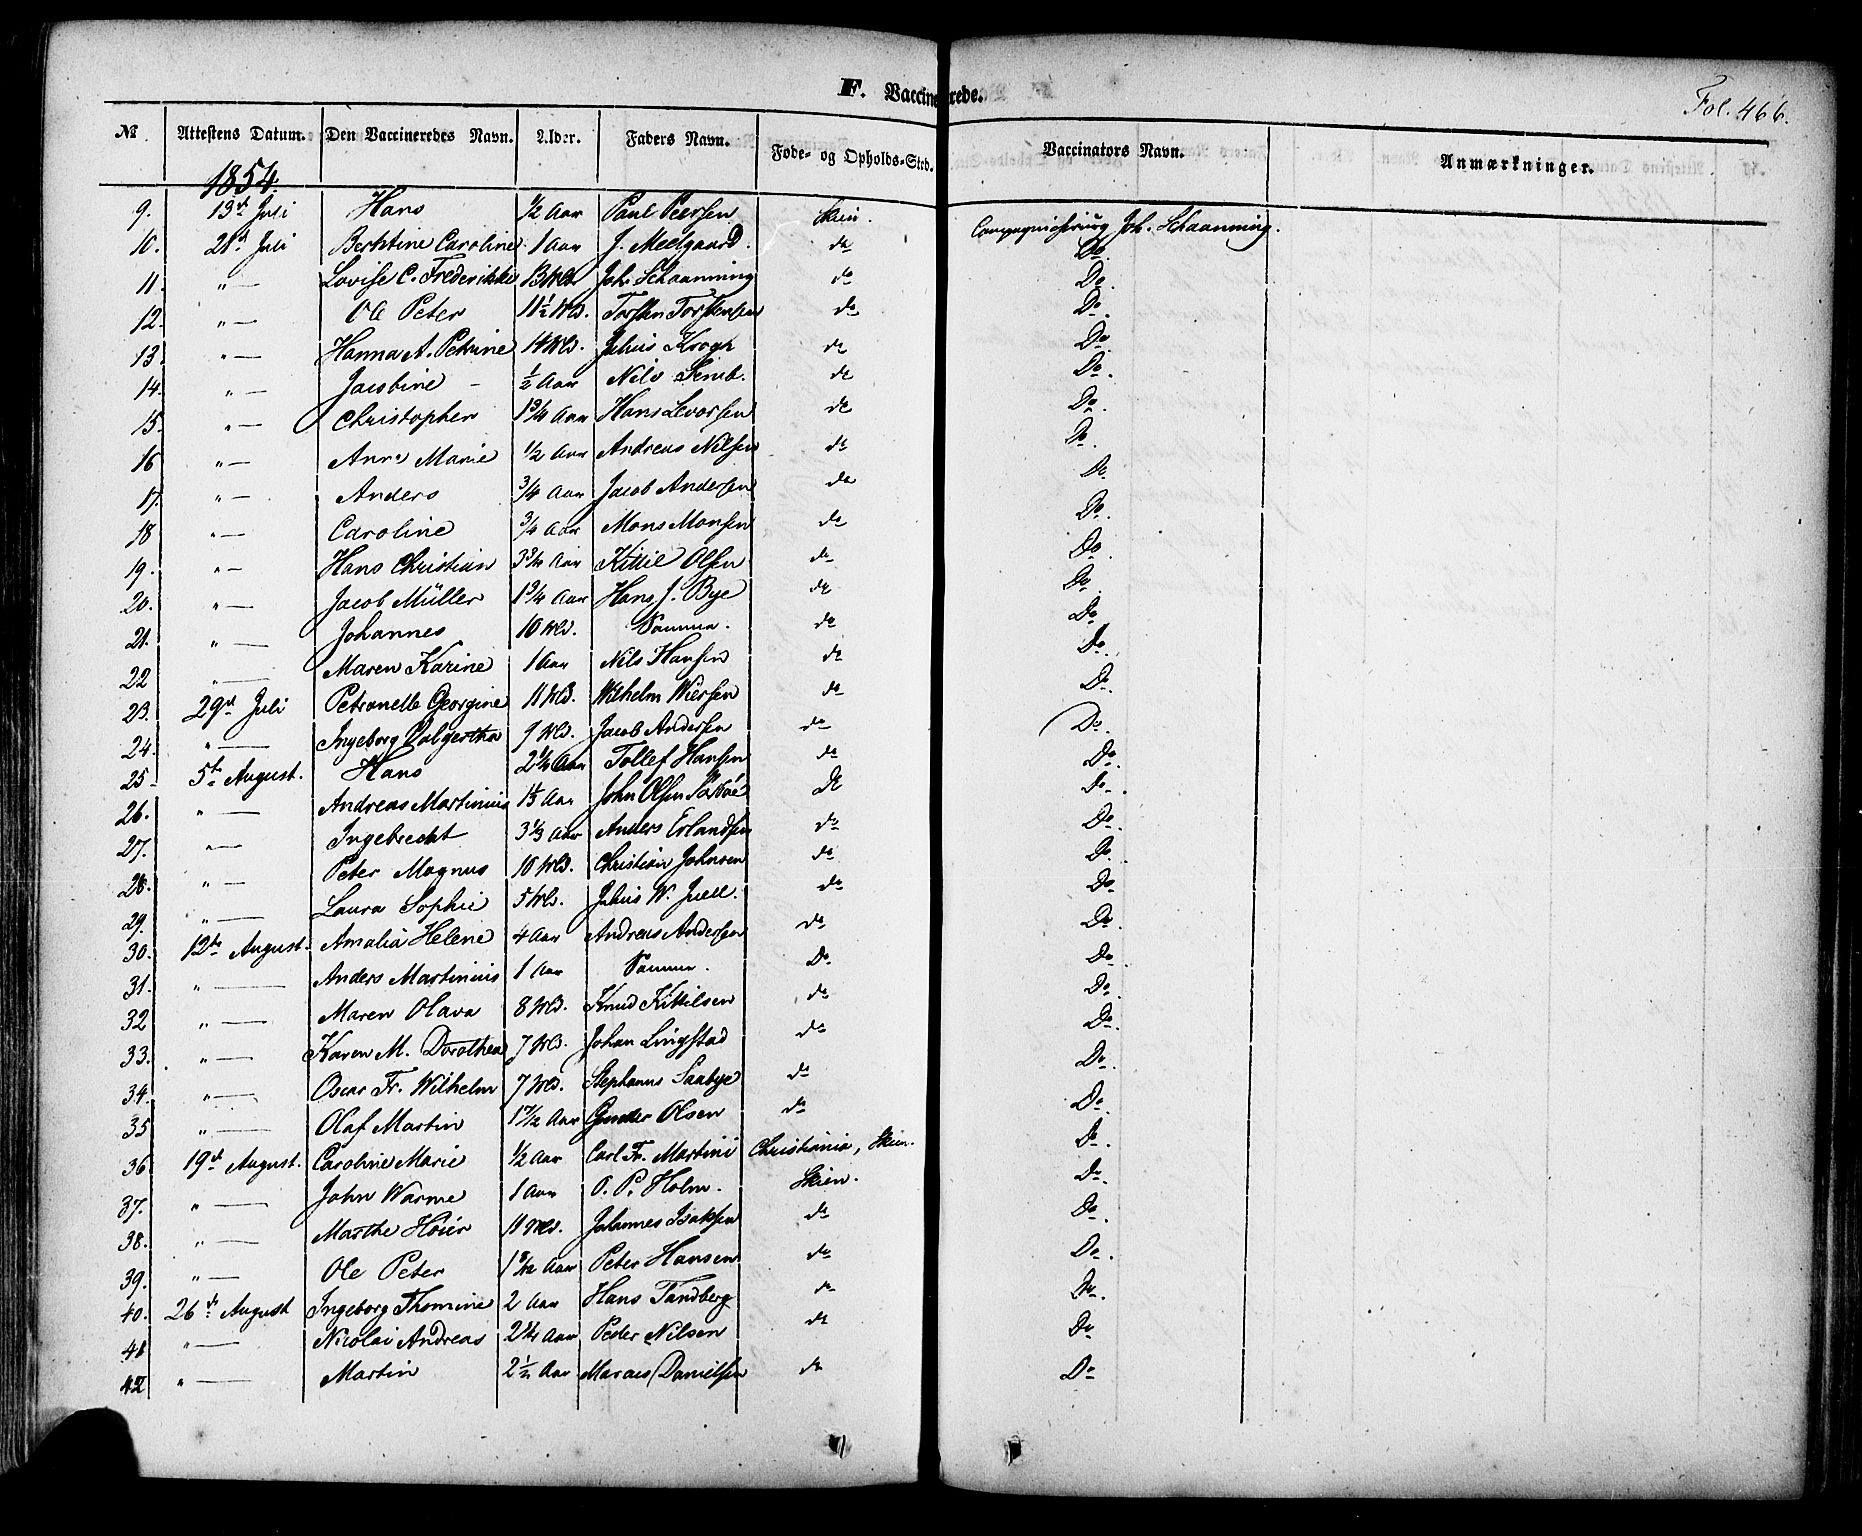 F. Vaccinerede.
Fol. 466.
№ Attestens Datum. Den Vaccineredes Navn. Alder. Faders Navn. Føde- og Opholds-Sted. Vaccinators Navn. Anmærkninger.
1854.
9. 13de Juli Hans 1/2 Aar Paul Peersen Skien. Compagniechirurg Joh. Schaanning.
10. 21de Juli Berhtine Caroline 1 Aar J. Meelgaard do Do
11. " — Lovise C. Frederikke 13 Mdr Joh. Schaanning do Do.
12. " — Ole Peter 11 1/2 Md. Torsten Torstensen do Do.
13. " — Hanna A. Petrine 14 Md. Julius Krogh do Do.
14. " — Jacobine — 1/2 Aar Nils do Do.
15. " — Christopher 1 3/4 Aar Hans Levorsen do Do.
16 " — Anne Marie 1/2 Aar Andreas Nilsen do Do.
17. " — Anders 3/4 Aar Jacob Andersen do Do.
18 " — Caroline 3/4 Aar Mons Monsen do Do.
19. " — Hans Christian 3 3/4 Aar Kittil Olsen do Do.
20. " — Jacob Müller 1 3/4 Aar Hans J. Bye do Do.
21. " — Johannes 10 Md. Samme. do Do.
22 " — Maren Karine 1 Aar Nils Hansen do Do.
23. 29de Juli Petronelle Georgine 11 Md. Wilhelm Wiersen do Do.
24. " — Ingeborg Valgertha 9 Md. Jacob Andersen do Do.
25 5te August. Hans 2 1/4 Aar Tollef Hansen do Do.
26. " — Andreas Martinius 1 1/3 Aar John Olsen do Do.
27. " — Ingebrecht 3 1/3 Aar Anders Erlandsen do Do.
28. " — Peter Magnus 10 Md. Christian Johnsen do Do.
29. " — Laura Sophie 5 Md. Julius W. Juell. do Do.
30. 12te August. Amalia Helene 4 Aar Andreas Andersen do Do.
31. " — Anders Martinius 1 Aar Samme. Do Do.
32 " — Maren Olava 8 Md. Knud Kittilsen do Do.
33. " — Karen M. Dorothea 7 Md. Johan Lingstad do Do.
34. " — Oscar Fr. Wilhelm 7 Md. Stephanus Saabye do Do.
35 " — Olaf Martin 1 7/12 Aar Gunder Olsen do Do.
36 19de August. Caroline Marie 1/2 Aar Carl Fr. Martini Christiania, Skien. Do.
37. " — John Warme 1 Aar O. P. Holm. Skien. Do.
38. " — Marthe Høier 11 Md. Johannes Isaksen do Do.
39. " — Ole Peter Peter Hansen do Do.
40. 26de August Ingeborg Thomine 2 Aar Hans Tandberg do Do.
41 " — Nicolai Andreas 2 1/4 Aar Peder Nilsen do Do
42 " — Martin 2 1/2 Aar Marcus Danielsen do Do